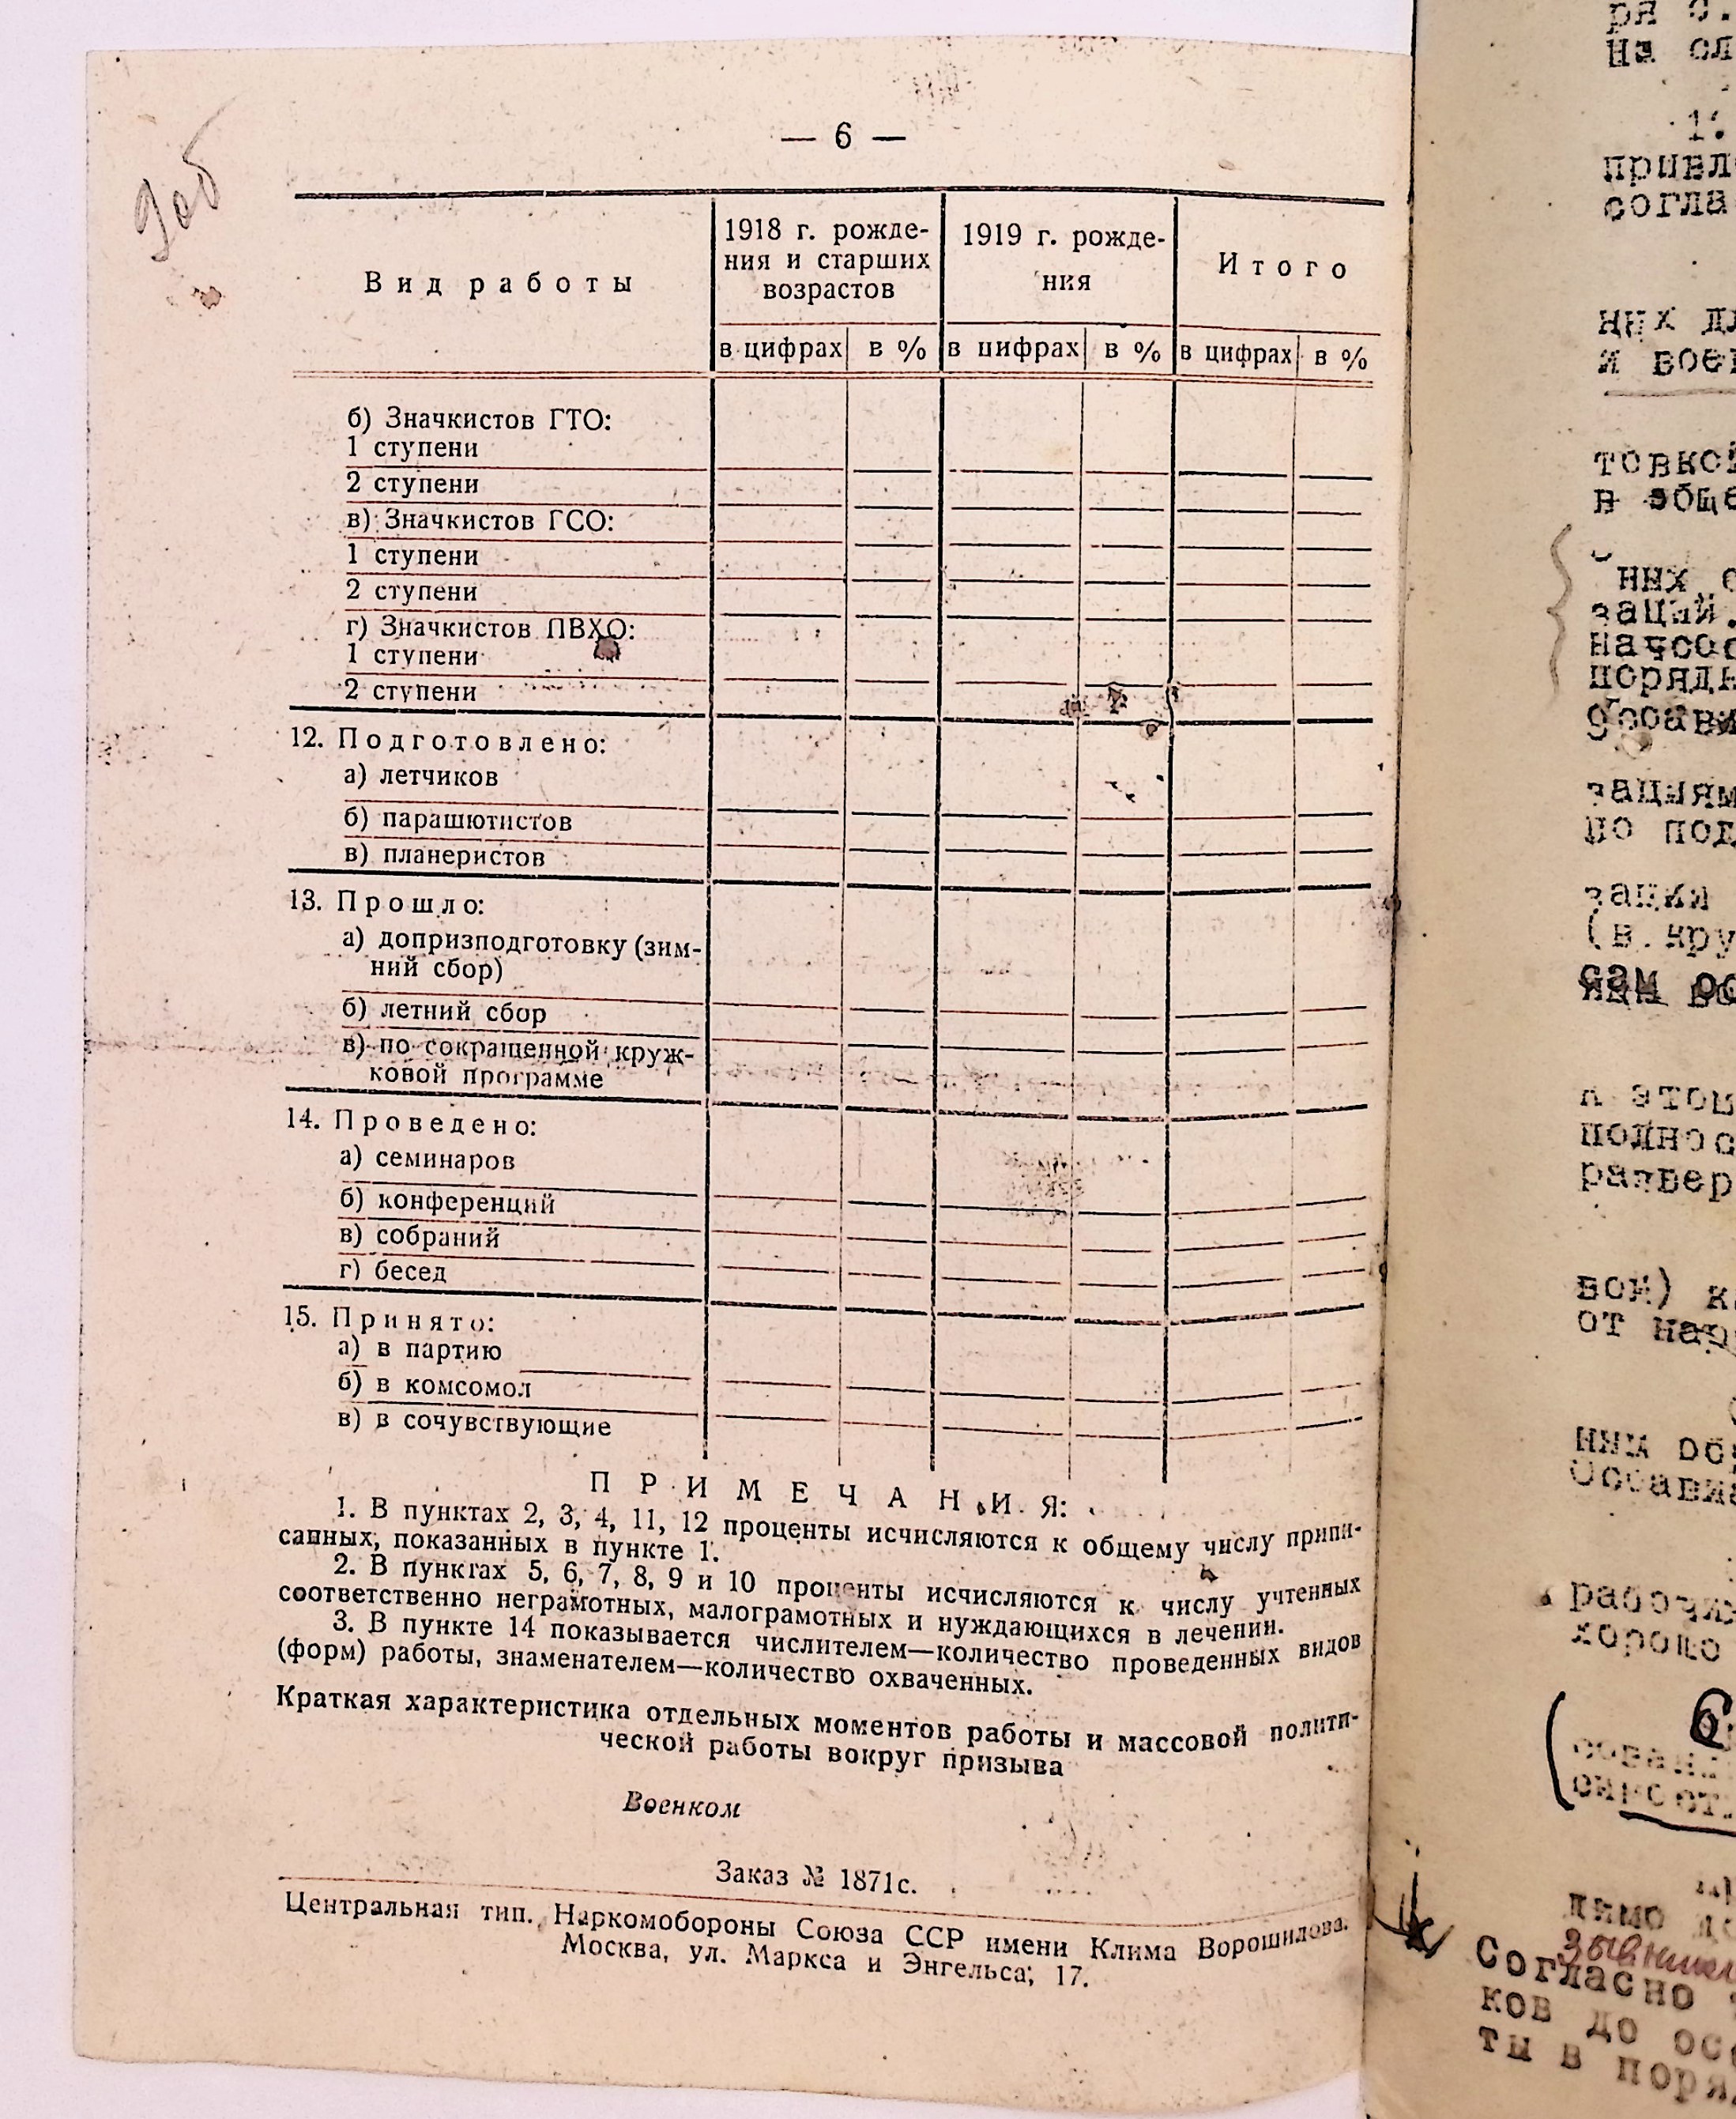 — 6 —
Вид работы
1918 г. рожде-
ния и старших
возрастов
1919 г. рожде-
ния
Итого
в цифрах в % в цифрах в % в цифрах в %
б) Значкистов ГТО:
1 ступени
2 ступени
в) Значкистов ГСО:
1 ступени
2 ступени
г) Значкистов ПВХО:
1 ступени
2 ступени
12. Подготовлено:
а) летчиков
б) парашютистов
в) планеристов
13. Прошло:
а) допризподготовку (зим-
ний сбор)
б) летний сбор
в) по сокращенной круж-
ковой программе
14. Проведено:
а) семинаров
б) конференций
в) собраний
г) бесед
15. Принято:
а) в партию
б) в комсомол
в) в сочувствующие
ПРИМЕЧАНИЯ:
1. В пунктах 2, 3, 4, 11, 12 проценты исчисляются к общему числу припи-
санных, показанных в пункте 1.
2. В пунктах 5, 6, 7, 8, 9 и 10 проценты исчисляются к числу учтенных
соответственно неграмотных, малограмотных и нуждающихся в лечении.
3. В пункте 14 показывается числителем—количество проведенных видов
(форм) работы, знаменателем—количество охваченных.
Краткая характеристика отдельных моментов работы и массовой полити-
ческой работы вокруг призыва
Военком
Заказ № 1871с.
Центральная тип. Наркомобороны Союза ССР имени Клима Ворошилова.
Москва, ул. Маркса и Энгельса; 17.
На сл
1.
привл
согла
них дл
и воен
товкой
в обще
них о
заций.
начсос
поряд
зациям
по под
зации
(в кру
к этом
поднос
развер
вой) к
от нар
ним об
Осоави
рабочи
хорошо
димо до
Согласно
ков до ос
ты в поря